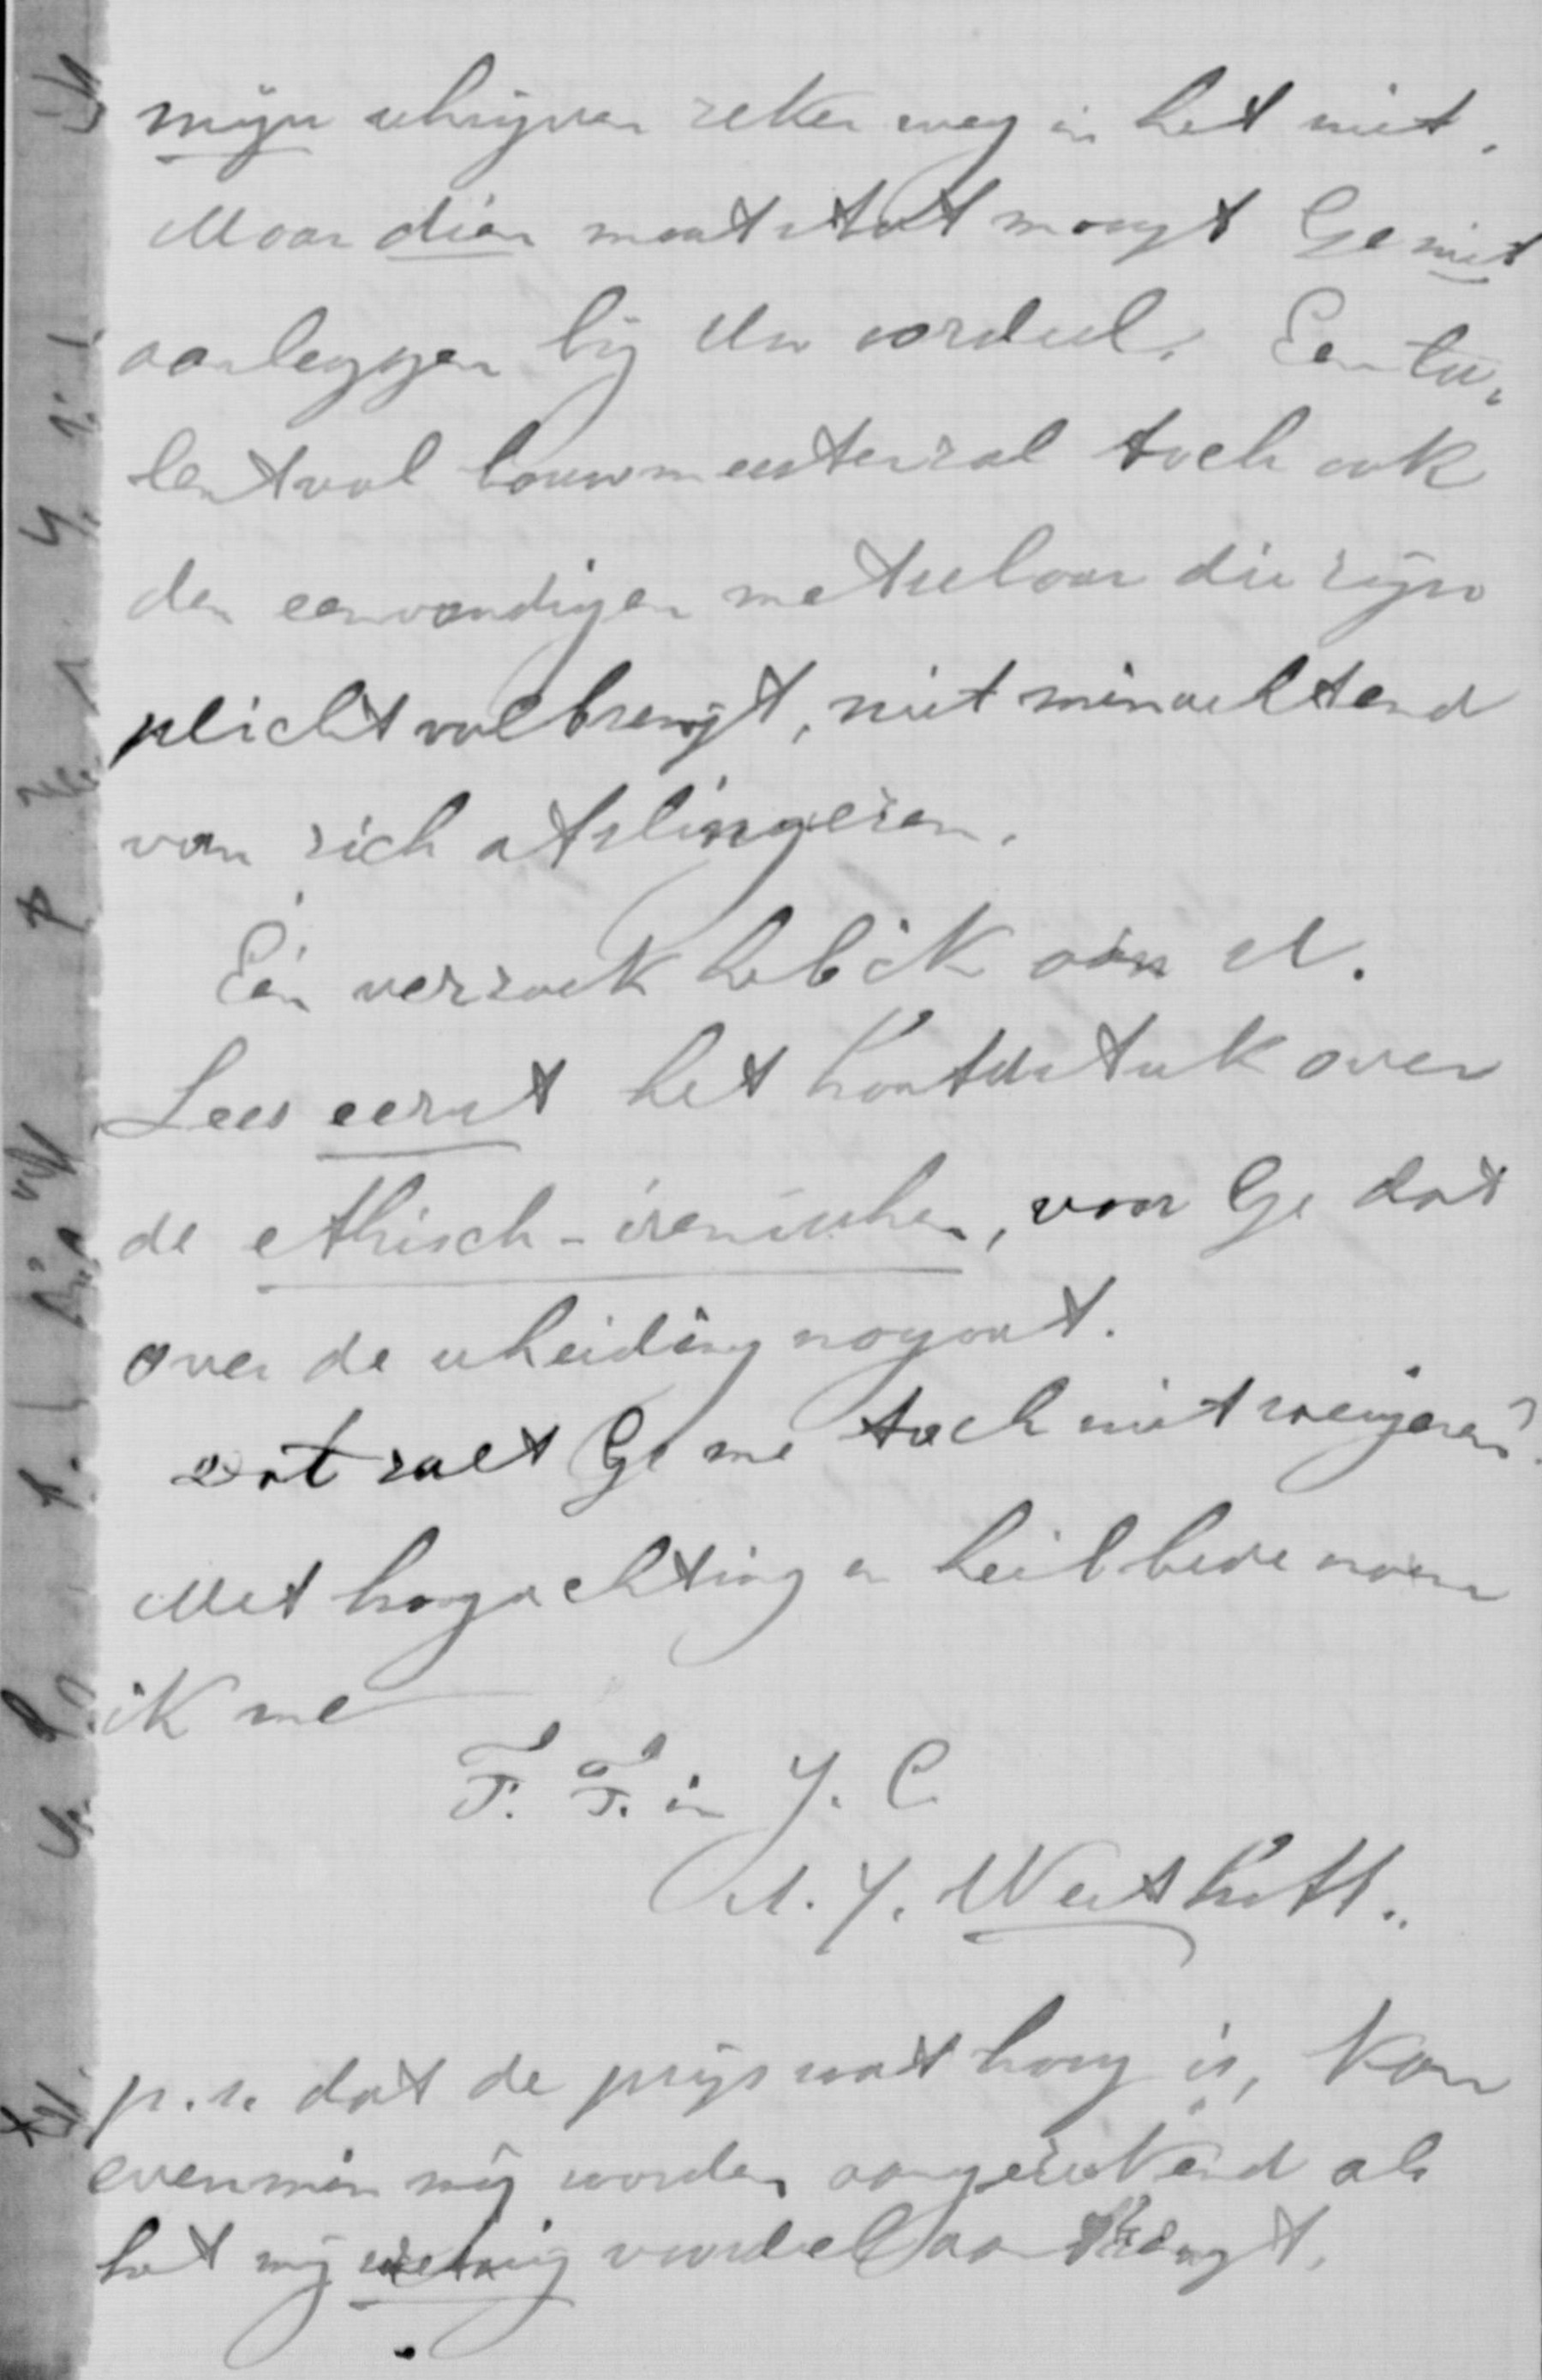 mijn schrijven zeker weg in het niet.
Maar dien maatstaf moogt Ge niet
aanleggen bij Uw oordeel. Een ta-
lentvol bouwmeester zal toch ook
den eenvoudigen metselaar die zijn
plicht volbrengt, niet minachtend
van zich afslingeren.
Eén verzoek heb ik aan U.
Lees eerst het hoofdstuk over
de ethisch-irenischen, voor Ge dat
over de scheiding nagaat.
Dat zult Ge me toch niet weigeren?
Met hoogachting en heilbede noem
ik me
T. T. in J. C.
J. Westhoff.
p.s. dat de prijs wat hoog is, kan
evenmin mij worden aangerekend als
het mij weinig voordeel aanbrengt.